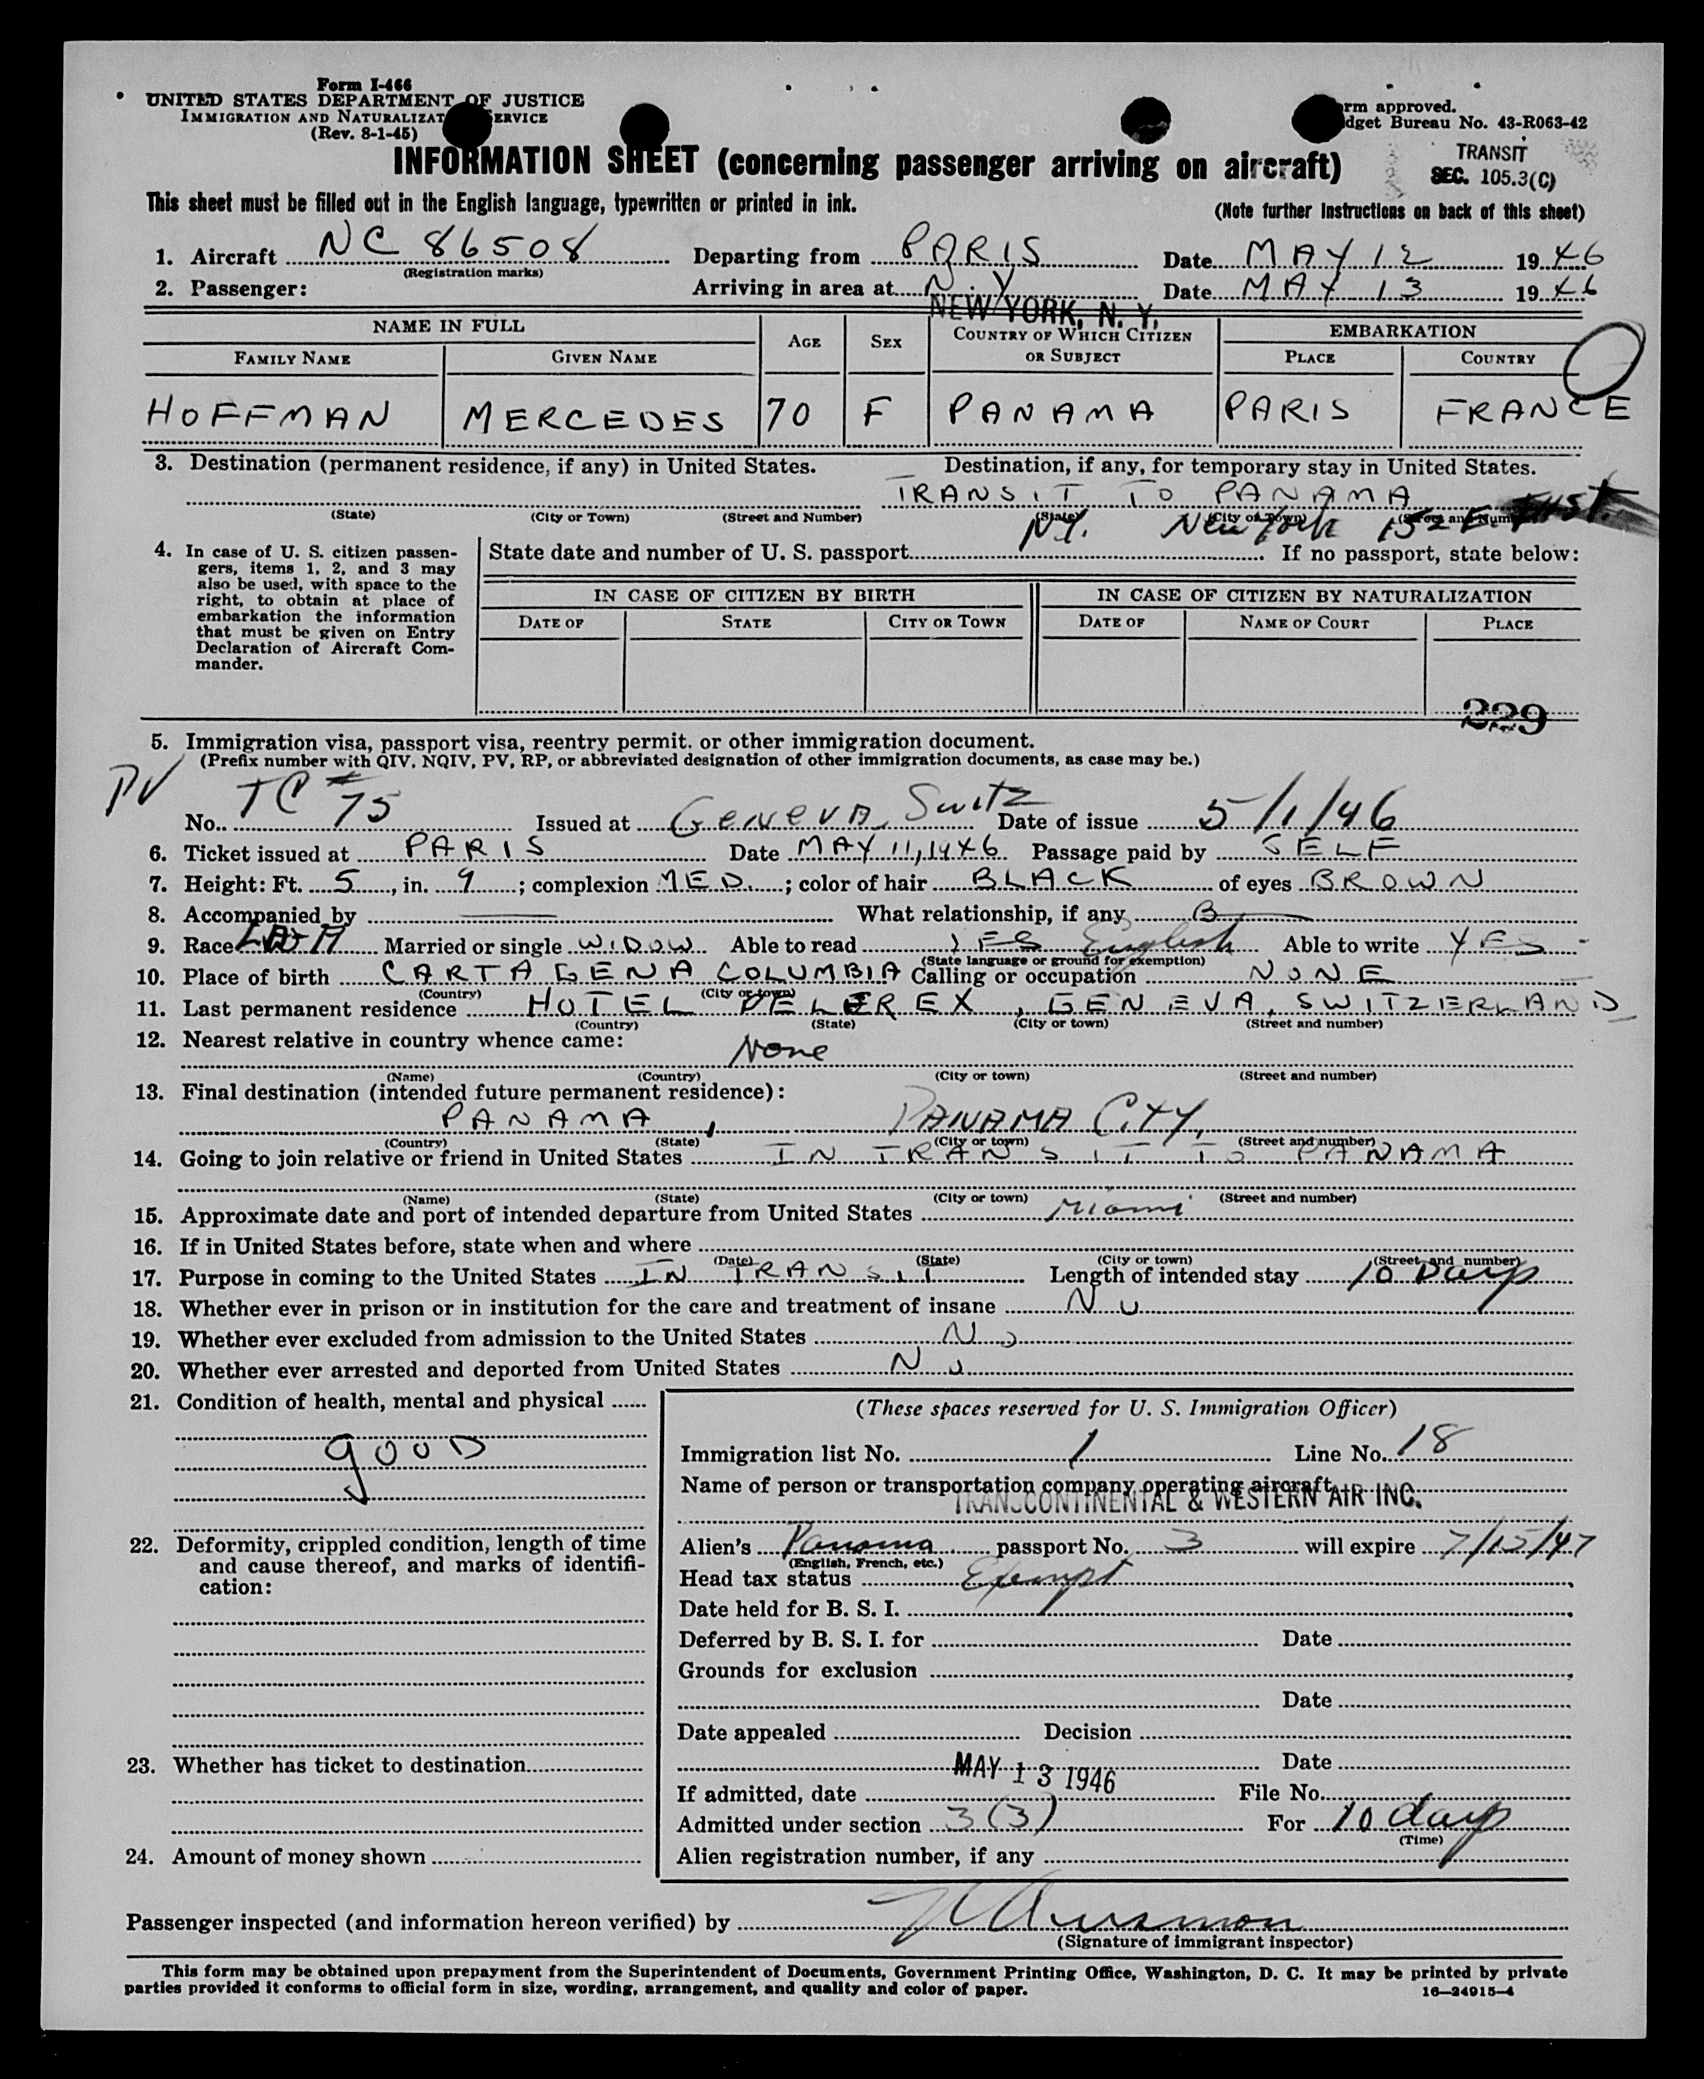 Form I-466
UNITED STATES DEPARTMENT OF JUSTICE
IMMIGRATION AND NATURALIZAT SERVICE
(Rev. 8-1-45)
rm approved.
dget Bureau No. 43-R063-42
TRANSIT
SEC. 105.3(C)
INFORMATION SHEET (concerning passenger arriving on aircraft)
This sheet must be filled out in the English language, typewritten or printed in ink.
(Note further instructions on back of this sheet)
1. Aircraft NC 86508 Departing from PARIS Date MAY 12 1946
(Registration marks)
2. Passenger: Arriving in area at N.Y Date MAY 13 1946
NEW YORK, N. Y.
NAME IN FULL AGE SEX COUNTRY OF WHICH CITIZEN OR SUBJECT EMBARKATION
FAMILY NAME GIVEN NAME PLACE COUNTRY
HOFFMAN MERCEDES 70 F PANAMA PARIS FRANCE
3. Destination (permanent residence, if any) in United States. Destination, if any, for temporary stay in United States.
TRANSIT TO PANAMA
(State) (City or Town) (Street and Number) (State) (City or Town) (Street and Number)
N.Y. New York 152 E
4. In case of U. S. citizen passengers, items 1, 2, and 3 may also be used, with space to the right, to obtain at place of embarkation the information that must be given on Entry Declaration of Aircraft Commander.
State date and number of U. S. passport If no passport, state below:
IN CASE OF CITIZEN BY BIRTH IN CASE OF CITIZEN BY NATURALIZATION
DATE OF STATE CITY OR TOWN DATE OF NAME OF COURT PLACE
229
5. Immigration visa, passport visa, reentry permit, or other immigration document.
(Prefix number with QIV, NQIV, PV, RP, or abbreviated designation of other immigration documents, as case may be.)
PV
No. TC # 75 Issued at GENEVA, Switz Date of issue 5/1/46
6. Ticket issued at PARIS Date MAY 11, 1946 Passage paid by SELF
7. Height: Ft. 5, in. 9; complexion MED.; color of hair BLACK of eyes BROWN
8. Accompanied by — What relationship, if any
9. Race Married or single WIDOW Able to read YES English Able to write YES
(State language or ground for exemption)
10. Place of birth CARTAGENA COLUMBIA Calling or occupation NONE
(Country) (City or town)
11. Last permanent residence HOTEL DELEREX, GENEVA, SWITZERLAND
(Country) (State) (City or town) (Street and number)
12. Nearest relative in country whence came:
None
(Name) (Country) (City or town) (Street and number)
13. Final destination (intended future permanent residence):
PANAMA, PANAMA CITY,
(Country) (State) (City or town) (Street and number)
14. Going to join relative or friend in United States IN TRANSIT TO PANAMA
(Name) (State) (City or town) (Street and number)
15. Approximate date and port of intended departure from United States Miami
16. If in United States before, state when and where
(Date) (State) (City or town) (Street and number)
17. Purpose in coming to the United States IN TRANSIT Length of intended stay 10 Days
18. Whether ever in prison or in institution for the care and treatment of insane No
19. Whether ever excluded from admission to the United States No
20. Whether ever arrested and deported from United States No
21. Condition of health, mental and physical
GOOD
22. Deformity, crippled condition, length of time and cause thereof, and marks of identification:
23. Whether has ticket to destination
24. Amount of money shown
(These spaces reserved for U. S. Immigration Officer)
Immigration list No. 1 Line No. 18
Name of person or transportation company operating aircraft
TRANSCONTINENTAL & WESTERN AIR INC.
Alien's Panama passport No. 3 will expire 7/15/47
(English, French, etc.)
Head tax status Exempt
Date held for B. S. I.
Deferred by B. S. I. for Date
Grounds for exclusion
Date
Date appealed Decision
Date
MAY 13 1946
If admitted, date File No.
Admitted under section 3(3) For 10 days
(Time)
Alien registration number, if any
Passenger inspected (and information hereon verified) by
(Signature of immigrant inspector)
This form may be obtained upon prepayment from the Superintendent of Documents, Government Printing Office, Washington, D. C. It may be printed by private
parties provided it conforms to official form in size, wording, arrangement, and quality and color of paper.
16—24915-4